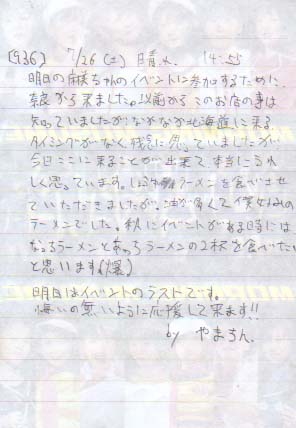 [936] 7/26(土) 晴れ 14:55
明日の麻美ちゃんのイベントに参加するために、
奈良から来ました。以前からこのお店の事は
知っていましたが、なかなか北海道に来る
タイミングがなく残念に思っていましたが
今日ここに来ることが出来て本当にうれ
しく思っています。しょうゆラーメンを食べさせ
ていただきましたが、油が多くて僕好みの
ラーメンでした。秋にイベントがある時には
なっちラーメンとあっちラーメンの2杯を食べたい
と思います(爆)
明日はイベントのラストです。
悔いの無いように応援して来ます!!
by やまちん